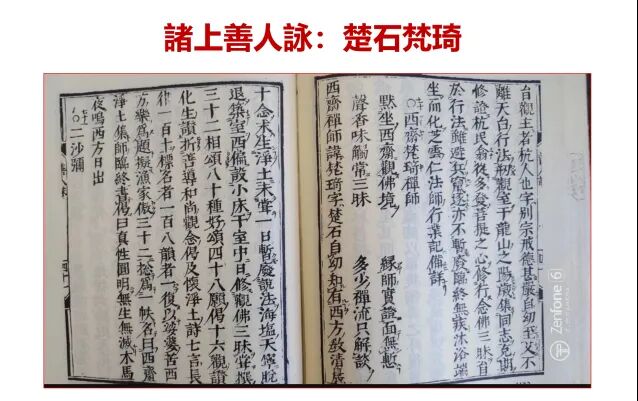 諸上善人詠：楚石梵琦
台觀主者杭人也字別宗戒德甚嚴自幼至不
離天台行法剏觀室于龍山之陽歲集同志克期
修證杭民翁從多發菩提之心修行念佛三昧自
於行法雖避兵竄逐亦不暫廢臨終無疾沐浴端
坐而化芝雲仁法師行業記備詳
〇西齋梵琦禪師
默坐西齋觀佛境　緣師實證面無慙
聲香味觸常三昧　多少禪流只解談
西齋禪師諱梵琦字楚石自幼知有西方教清晨
十念求生淨土未甞一日暫廢説法海塩天寧脫
退築室西偏設小床于室中日修觀佛三昧甞撰
三十二相頌八十種好頌四十八願偈十六觀讃
化生讃析善導和尚觀念偈及懐淨土詩七言長
律一百十標名者一百八韻者一復以娑婆苦西
方樂為題擬漁家傲三十二為一帙名曰西齋
淨土集師臨終書偈曰真性圓明無生無滅木馬
夜鳴西方日出
〇二沙彌
Zenfone 6